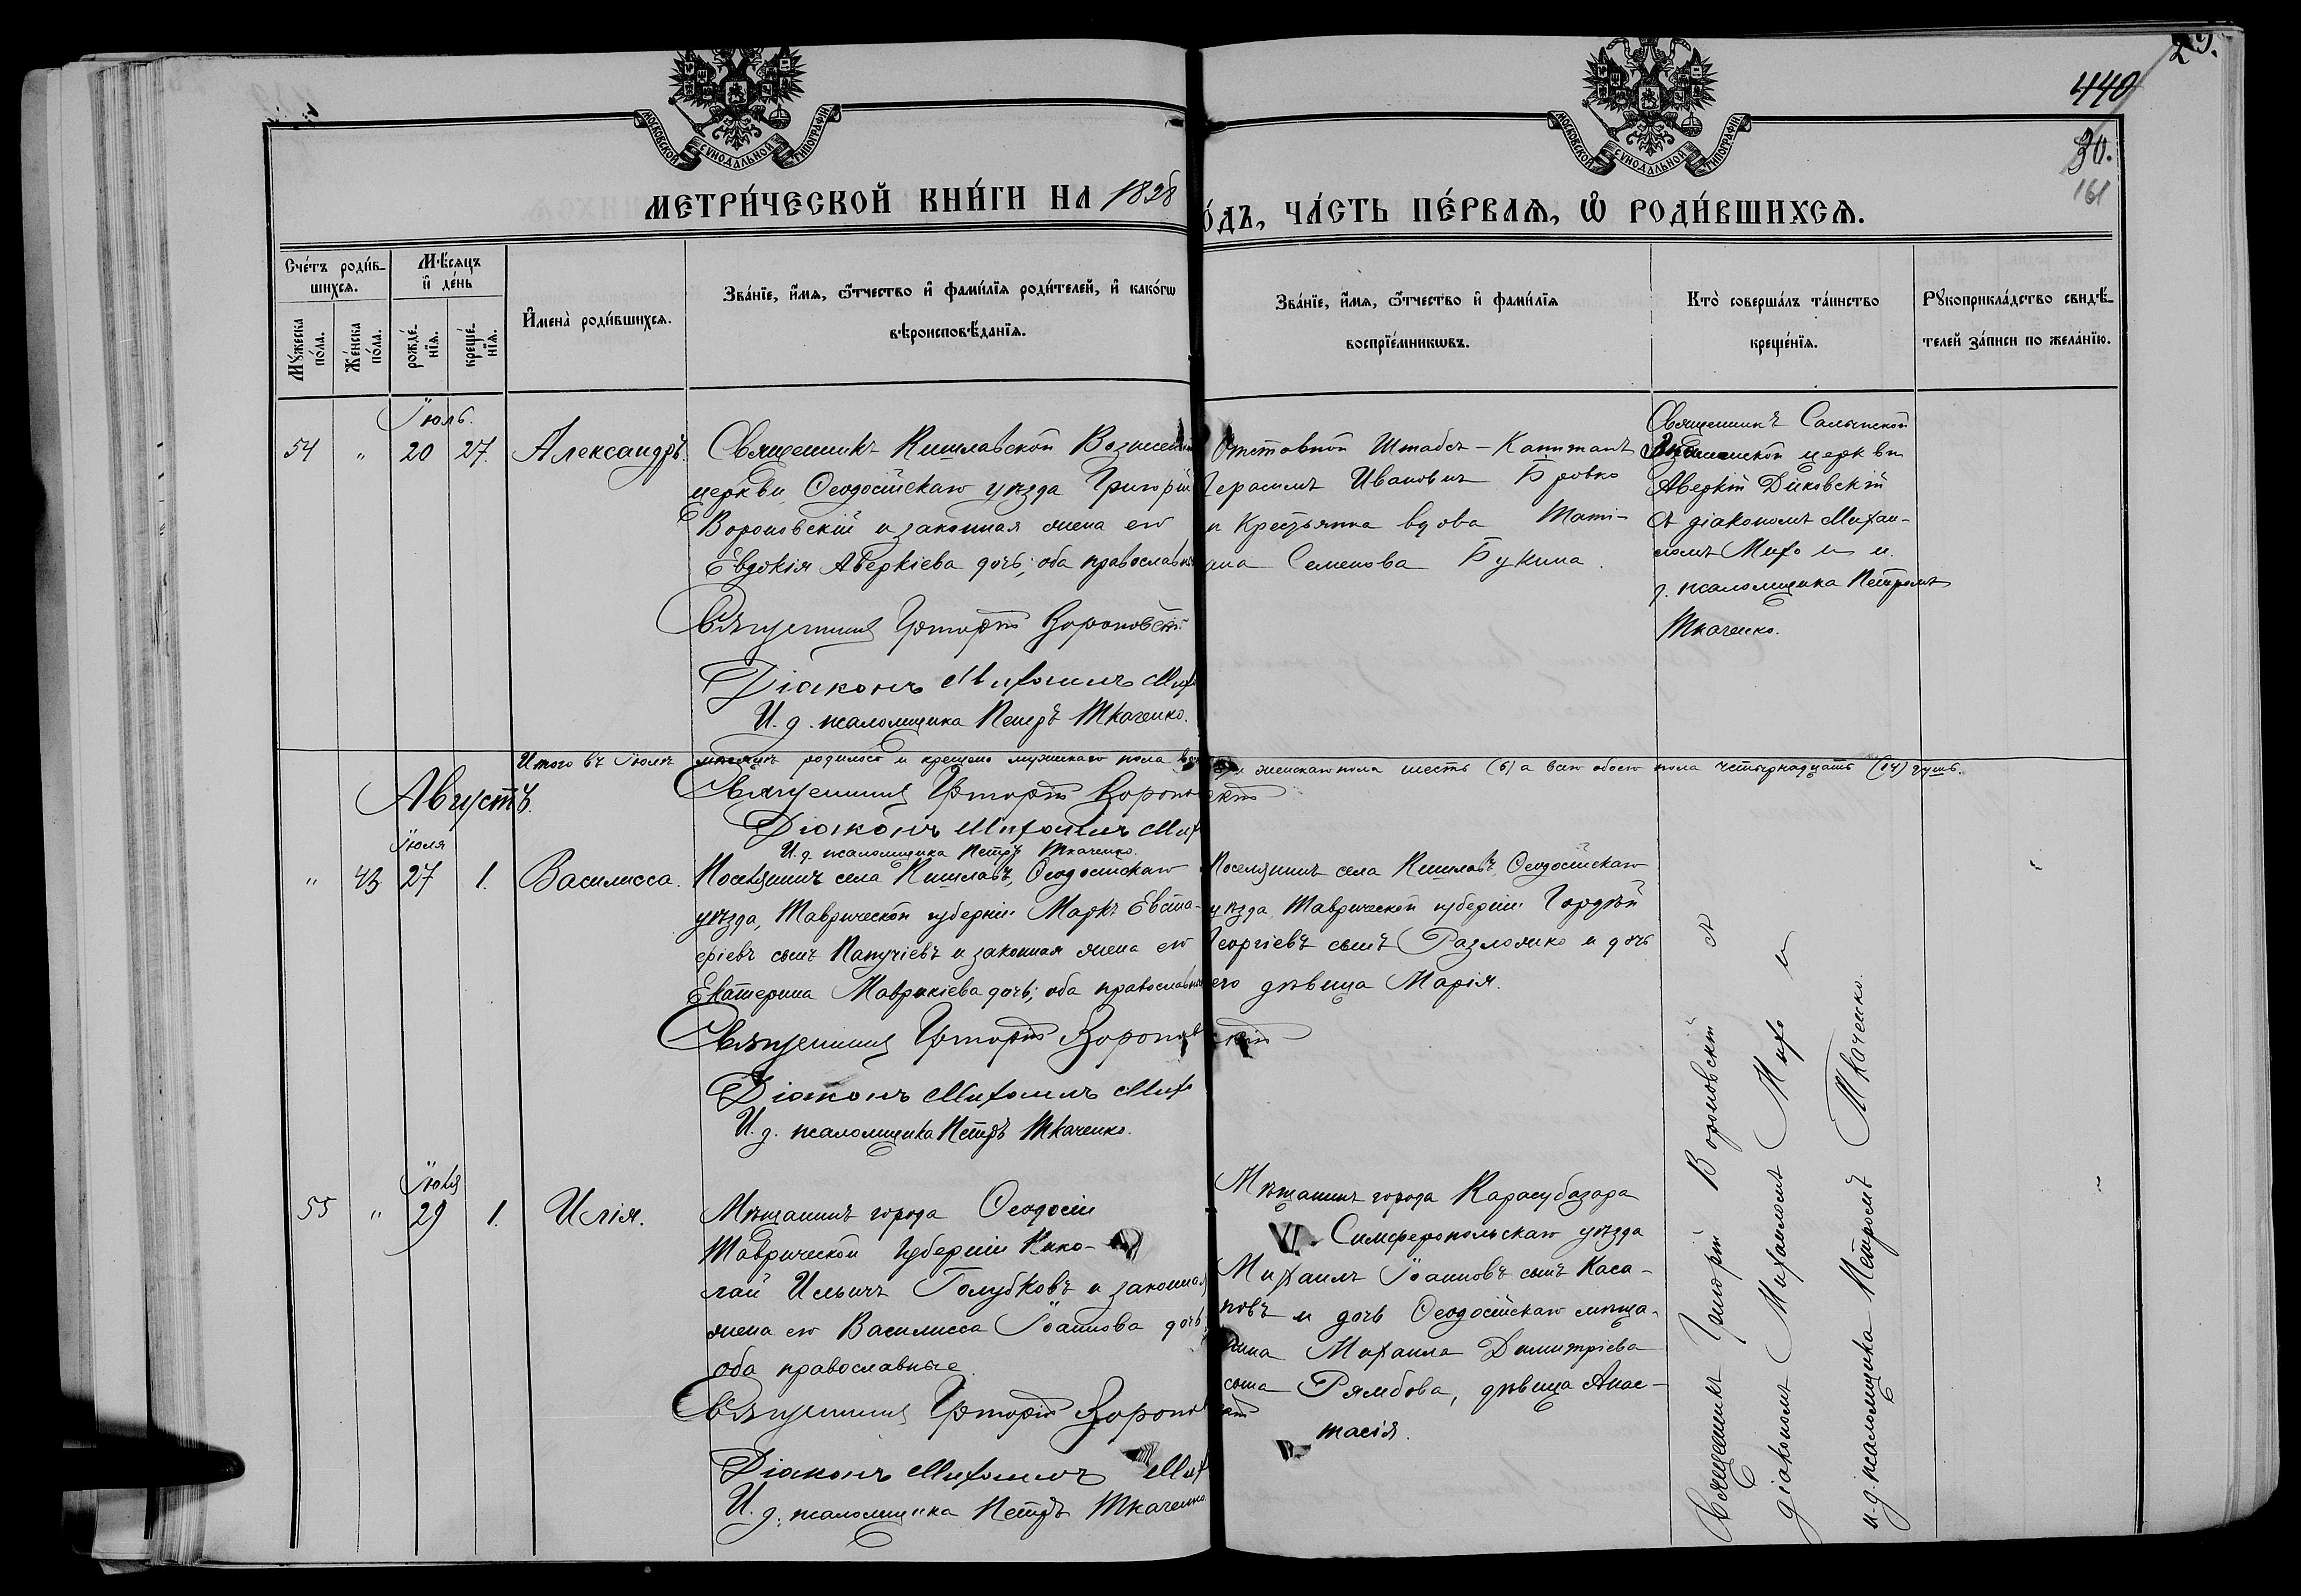 29.
440
30.
161
МОСКОВСКОЙ СУНОДАЛЬНОЙ ТИПОГРАФІИ
МОСКОВСКОЙ СУНОДАЛЬНОЙ ТИПОГРАФІИ
МЕТРИ́ЧЕСКОЙ КНИ́ГИ НА 1898
О́ДЪ, ЧА́СТЬ ПЕ́РВАѦ, Ѽ РОДИ́ВШИХСѦ.
Сче́тъ роди́в-
шихсѧ.
Мꙋ́жеска
по́ла.
Же́нска
по́ла.
Мѣ́сѧцъ
и҆ де́нь
рожде́-
нїѧ.
креще́-
нїѧ.
И҆мена̀ роди́вшихсѧ.
Зва́нїе, и҆́мѧ, ѻ҆́тчество и҆ фами́лїѧ роди́телей, и҆ како́гѡ
вѣроисповѣ́данїѧ.
Зва́нїе, и҆́мѧ, ѻ҆́тчество и҆ фами́лїѧ
воспрїе́мникѡвъ.
Кто̀ соверша́лъ та́инство
креще́нїѧ.
Рꙋкоприкла́дство свидѣ́-
телей за́писи по жела́нїю.
Іюль.
54 " 20 27. Александръ.
Священникъ Кишлавской Вознесен
церкви, Ѳеодосійскаго уѣзда Григорій
Вороновскій и законная жена его
Евдокія Аверкіева дочь; оба православн
Священникъ Григорій Вороновскій
Діаконъ Михаилъ Михо
И. д. псаломщика Петръ Ткаченко.
Отставной Штабсъ-Капитанъ
Герасимъ Ивановичъ Бровко
и Крестьянка вдова Тати-
ана Семенова Букина.
Священникъ Салынской
церкви
Аверкій Диковскій
съ діакономъ Михаи-
ломъ Михо и и.
д. псаломщика Петромъ
Ткаченко.
Итого въ Іюлѣ мѣсяцѣ родилось и крещено мужескаго пола
и женскаго пола шесть (6) а всего обоего пола четырнадцать (14) душъ.
Священникъ Григорій Вороновскій
Діаконъ Михаилъ Мих
И. д. псаломщика Петръ Ткаченко.
Августъ.
Іюля
" 43 27 1. Василисса.
Поселянинъ села Кишлавъ, Ѳеодосійскаго
уѣзда, Таврической губерніи Маркъ Евста-
фіевъ сынъ Папучіевъ и законная жена его
Екатерина Маврикіева дочь; оба православные
Священникъ Григорій Вороновскій
Діаконъ Михаилъ Михо
И. д. псаломщика Петръ Ткаченко.
Поселянинъ села Кишлавъ, Ѳеодосійскаго
уѣзда, Таврической губерніи Гордѣй
Георгіевъ сынъ Разложко и дочь
его дѣвица Марія.
Іюля
55 " 29 1. Илія.
Мѣщанинъ города Ѳеодосіи
Таврической Губерніи Нико-
лай Ильичъ Голубковъ и законная
жена его Василисса Іоаннова дочь
оба православные
Священникъ Григорій Вороновскій
Діаконъ Михаилъ Мих
И. д. псаломщика Петръ Ткаченко
Мѣщанинъ города Карасубазара
Симферопольскаго уѣзда
Михаилъ Іоанновъ сынъ Каса-
повъ и дочь Ѳеодосійскаго мѣща-
нина Михаила Димитріева
сына Рямбова, дѣвица Анас-
тасія.
Священникъ Григорій Вороновскій съ
діакономъ Михаиломъ Михо и
и. д. псаломщика Петромъ Ткаченко.